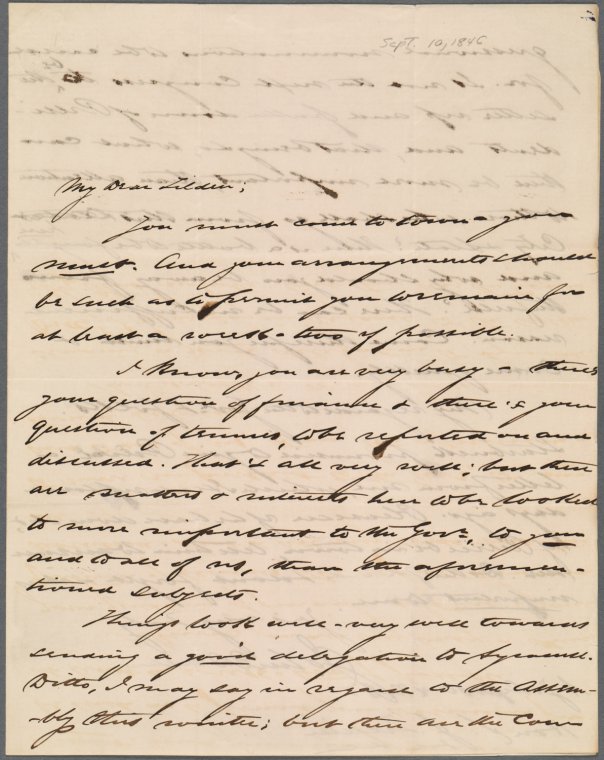 Sept. 10, 1846
My Dear Tilden;
You must come to town - you
must. And your arrangements should
be such as to permit you to remain for
at least a week - two if possible.
I know, you are very busy - theres
your question of finance & there's your
question of tenures, to be reported on and
discussed. That's all very well; but there
are matters & interests here to be looked
to more important to the Govr., to you
and to all of us, than the aforemen-
tioned subjects.
Things look well - very well towards
sending a good delegation to Syracuse.
Ditto, I may say in regard to the Assem-
bly this winter; but there are the Con-